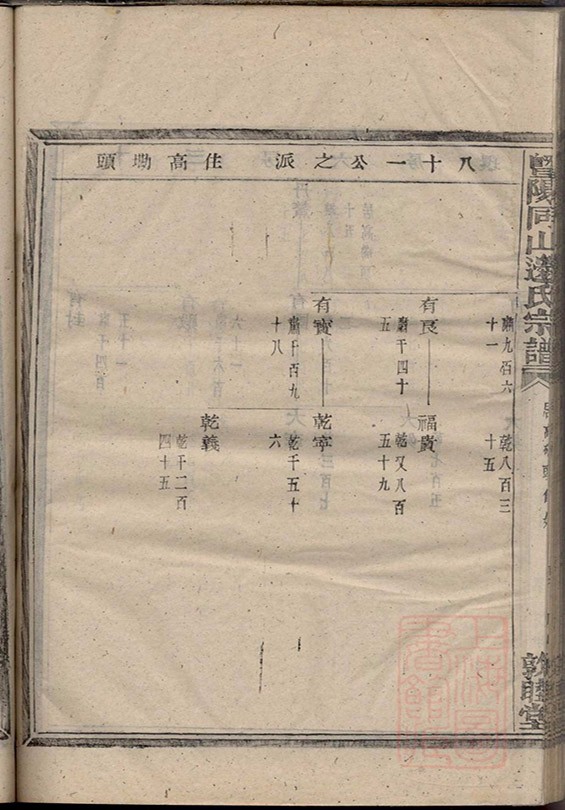 暨陽同山邊氏宗譜
敦睦堂
八十一公之派 住高坳頭
肅九百六
十一
乾八百三
十五
有良
肅千四十
五
福貴
乾又八百
五十九
有寶
肅千百九
十八
乾寧
乾千五十
六
乾義
乾千二百
四十五